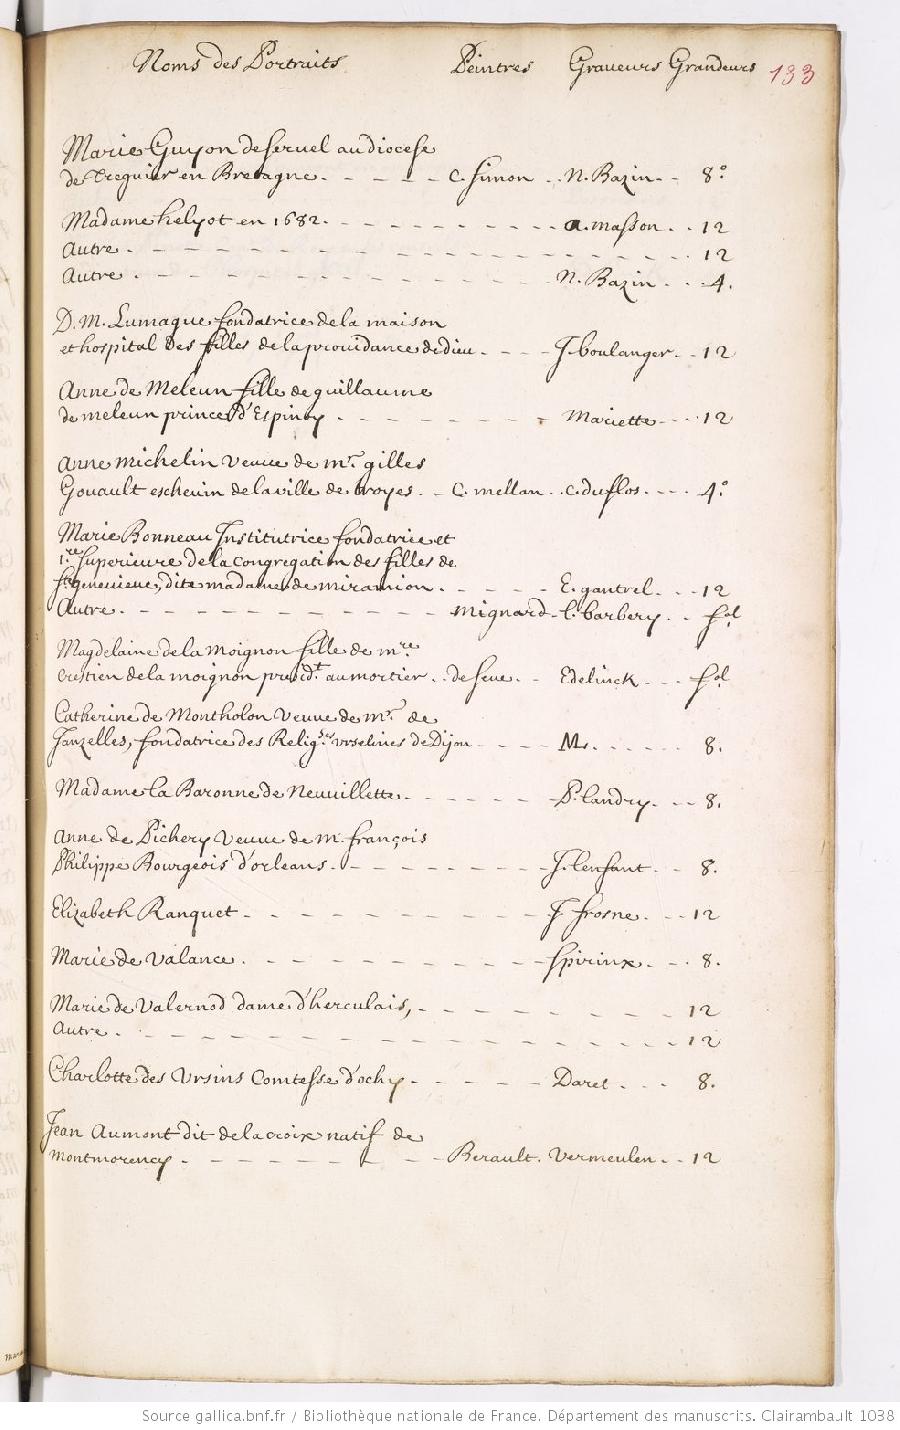 Noms des Portraits Peintres Graveurs Grandeurs 133
Marie Guyon de servel au diocese
de Treguier en Bretagne. C. Simon N. Bazin 8°
Madame helyot en 1682. a. masson 12
Autre 12
Autre N. Bazin 4.
D. M. Lumague fondatrice de la maison
et hospital des filles de la prouidance de dieu J. boulanger 12
Anne de Meleun fille de guillaume
de meleun prince d'Espinoy Mariette 12
Anne michelin veuue de mr. gilles
Gouault escheuin de la ville de troyes C. mellan c. duflos 4°
Marie Bonneau Institutrice fondatrice et
1re superieure de la Congregation des filles de
ste geneuieue, dite madame de miramion E. gantrel 12
Autre mignard l. barbery fol
Magdelaine de la Moignon fille de mre
crestien de la moignon presidt au mortier de seue Edelinck fol
Catherine de Montholon veuue de mr de
Sanzelles, fondatrice des Religses vrselines de Dijon M. 8.
Madame la Baronne de Neuuillette P. landry 8.
Anne de Pichery veuue de m. françois
Philippe Bourgeois d'orleans J. lenfant 8.
Elizabeth Ranquet J frosne 12
Marie de valance Spirinx 8.
Marie de valernod dame d'herculais, 12
Autre 12
Charlotte des vrsins Comtesse d'ochy Daret 8.
Jean Aumont dit de la croix natif de
montmorency Berault. Vermeulen 12
Source gallica.bnf.fr / Bibliothèque nationale de France. Département des manuscrits. Clairambault 1038